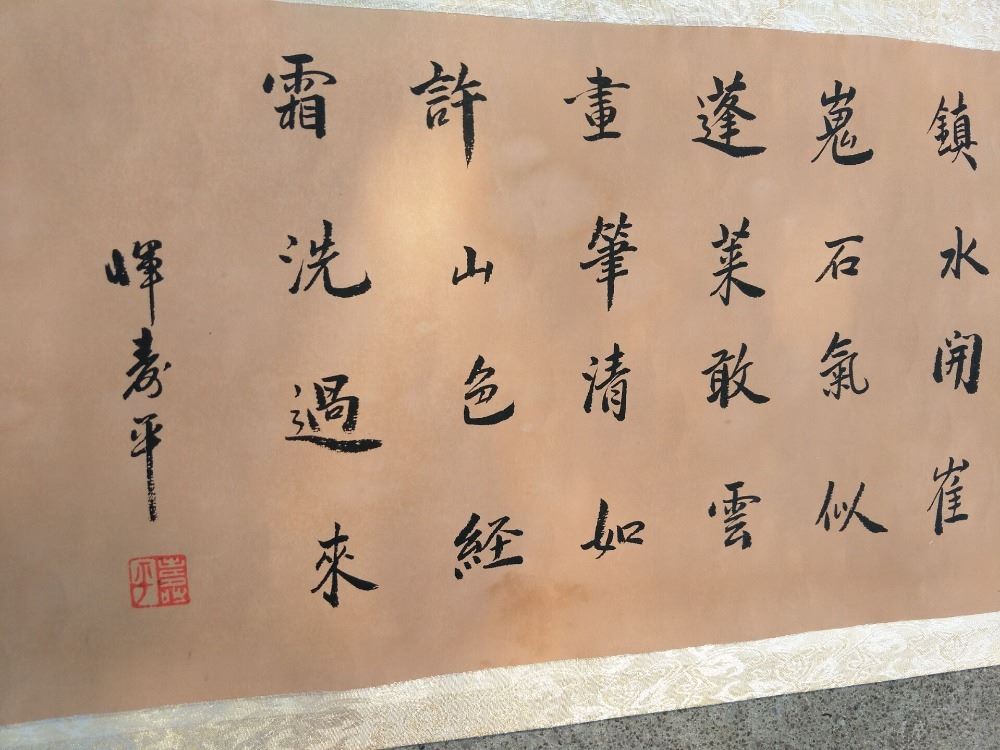 鎮水開崔
嵬石氣似
蓬萊敢雲
畫筆清如
許山色經
霜洗過來
惲壽平
壽平